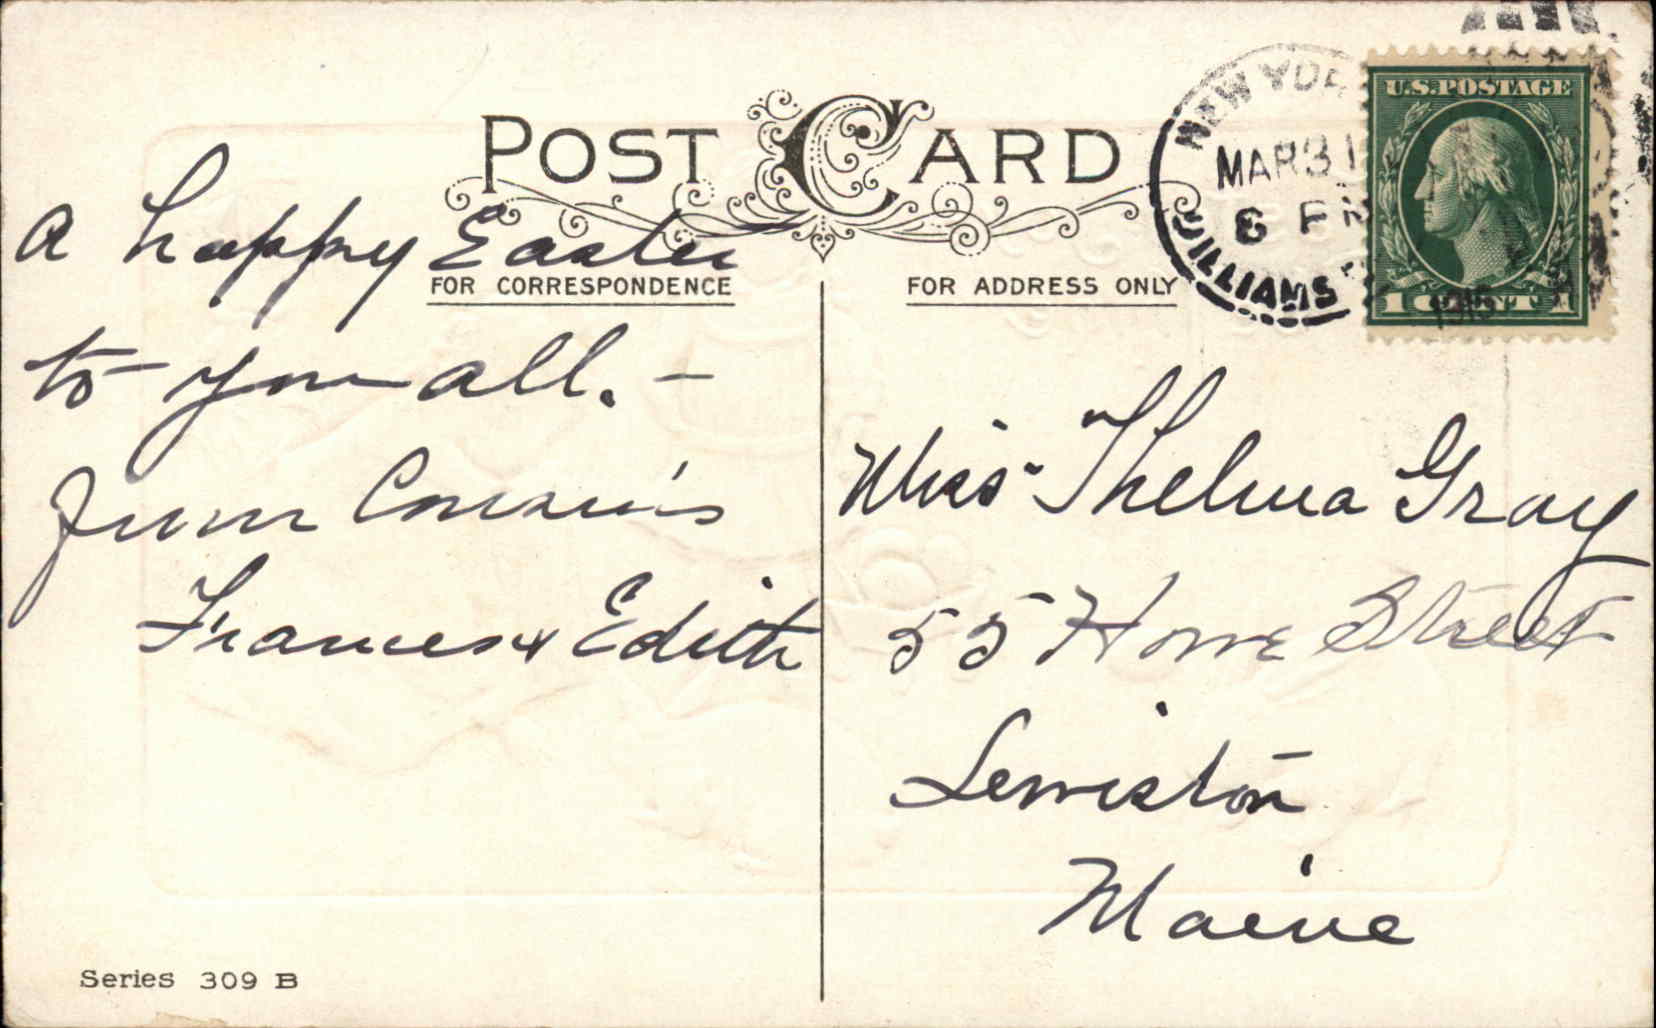 POST CARD
FOR CORRESPONDENCE
FOR ADDRESS ONLY
NEW YORK
MAR 31
6 PM
WILLIAMS
1915
U.S. POSTAGE
1 CENT 1
A happy Easter
to you all. —
from Cousin's
Frances & Edith
Miss Thelma Gray
55 Howe Street
Lewiston
Maine
Series 309 B